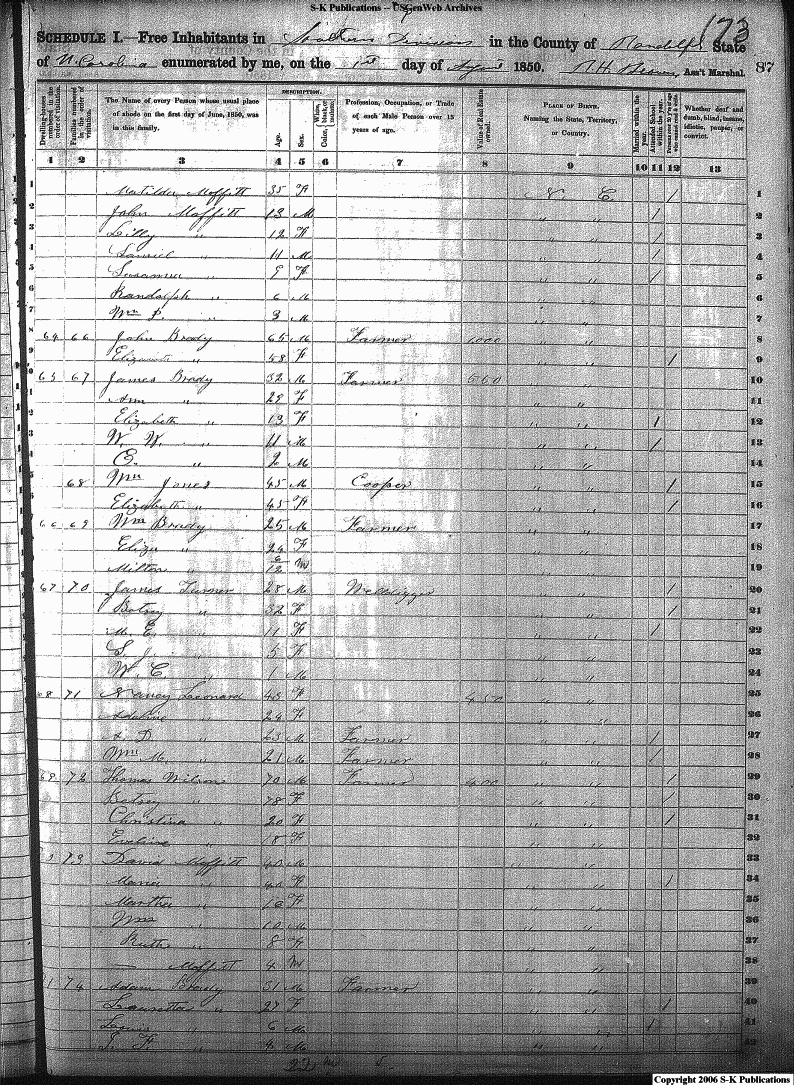 S-K Publications -- USGenWeb Archives
173
SCHEDULE I.—Free Inhabitants in Southern Division in the County of Randolph State
of N. Carolina enumerated by me, on the 1st day of August 1850. Ass't Marshal. 87
Dwelling-houses numbered in the order of visitation.
Families numbered in the order of visitation.
The Name of every Person whose usual place of abode on the first day of June, 1850, was in this family.
DESCRIPTION.
Age.
Sex.
Color, White, black, or mulatto.
Profession, Occupation, or Trade of each Male Person over 15 years of age.
Value of Real Estate owned.
PLACE OF BIRTH. Naming the State, Territory, or Country.
Married within the year.
Attended School within the year.
Persons over 20 y'rs of age who cannot read & write.
Whether deaf and dumb, blind, insane, idiotic, pauper, or convict.
1 2 3 4 5 6 7 8 9 10 11 12 13
1 Matilda Moffitt 35 F N. C. / 1
2 John Moffitt 13 M " " / 2
3 Lilly " 12 F " " / 3
4 " 11 M " " / 4
5 Susanna " 9 F " " / 5
6 Randolph " 6 M " " 6
7 Wm P. " 3 M " " 7
8 64 66 John Brady 65 M Farmer 1000 " " 8
9 Elizabeth " 58 F " " / 9
10 65 67 James Brady 32 M Farmer 550 " " 10
Ann " 28 F " " 11
Elizabeth " 13 F " " / 12
W. W. " 11 M " " / 13
C. " 2 M " " 14
68 Wm Jones 45 M Cooper " " / 15
Elizabeth " 45 F " " / 16
66 69 Wm Brady 25 M Farmer " " 17
Eliza " 24 F " " 18
Milton " 6/12 M " " 19
67 70 James Turner 28 M Welldigger " " / 20
Betsey " 32 F " " / 21
M. E. " 11 F " " / 22
S. J. " 5 F " " 23
W. C. " 1 M " " 24
68 71 Nancy Leonard 45 F 450 " " 25
Adeline " 24 F " " 26
A. D. " 23 M Farmer " " / 27
Wm M. " 21 M Farmer " " / 28
69 72 Thomas Wilson 70 M Farmer 400 " " / 29
Betsey " 78 F " " / 30
Christina " 20 F " " / 31
Eveline " 18 F " " 32
73 David Moffitt 40 M " " 33
" 40 F " " / 34
Martha " 16 F " " 35
Wm " 10 M " " 36
Ruth " 8 F " " 37
— Moffitt 4 M " " 38
74 Adam Brady 31 M Farmer " " 39
Lauretta " 27 F " " / 40
" 6 M " " / 41
" 4 M " " 42
Copyright 2006 S-K Publications